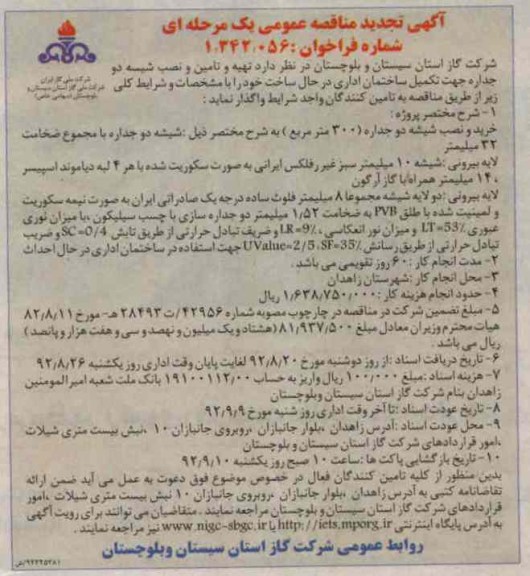 آگهی تجدید مناقصه عمومی یک مرحله ای
شماره فراخوان :۱،۳۴۲،۰۵۶
شرکت ملی گاز ایران
شرکت گاز استان سیستان و بلوچستان در نظر دارد تهیه و تامین و نصب شیسه دو
جداره جهت تکمیل ساختمان اداری در حال ساخت خود را با مشخصات و شرایط کلی
زیر از طریق مناقصه به تامین کنندگان واجد شرایط واگذار نماید :
۱- شرح مختصر پروژه :
خرید و نصب شیشه دو جداره (۳۰۰ متر مربع ) به شرح مختصر ذیل :شیشه دو جداره با مجموع ضخامت
۳۲ میلیمتر
لایه بیرونی :شیشه ۱۰ میلیمتر سبز غیر رفلکس ایرانی به صورت سکوریت شده با هر ۴ لبه دیاموند اسپیسر
، ۱۴ میلیمتر همراه با گاز آرگون
لایه بیرونی :دو لایه شیشه مجموعا ۸ میلیمتر فلوت ساده درجه یک صادراتی ایران به صورت نیمه سکوریت
و لمینیت شده با طلق PVB به ضخامت ۱/۵۲ میلیمتر دو جداره سازی با چسب سیلیکون ،با میزان نوری
عبوری LT=53٪ و میزان نور انعکاسی ، LR=9٪ و ضریف تبادل حرارتی از طریق تابش SC=0/4 و ضریب
تبادل حرارتی از طریق رسانش UValue=2/5 ،SF=35٪ جهت استفاده در ساختمان اداری در حال احداث
۲- مدت انجام کار :۶۰ روز تقویمی می باشد .
۳- محل انجام کار :شهرستان زاهدان
۴- حدود انجام هزینه کار :۱/۶۳۸/۷۵۰/۰۰۰ ریال
۵- مبلغ تضمین شرکت در مناقصه در چار چوب مصوبه شماره ۴۲۹۵۶/ت ۲۸۴۹۳ هـ- مورخ ۸۲/۸/۱۱
هیات محترم وزیران معادل مبلغ ۸۱/۹۳۷/۵۰۰ (هشتاد و یک میلیون و نهصد و سی و هفت هزار و پانصد)
ریال می باشد .
۶- تاریخ دریافت اسناد :از روز دوشنبه مورخ ۹۲/۸/۲۰ لغایت پایان وقت اداری روز یکشنبه ۹۲/۸/۲۶
۷- هزینه اسناد :مبلغ ۱۰۰/۰۰۰ ریال واریز به حساب ۱۹۱۰۰۱۱۲/۰۰ بانک ملت شعبه امیر المومنین
زاهدان بنام شرکت گاز استان سیستان وبلوچستان
۸- تاریخ عودت اسناد :تا آخر وقت اداری روز شنبه مورخ ۹۲/۹/۹
۹- محل عودت اسناد :آدرس زاهدان ،بلوار جانبازان ،روبروی جانبازان ۱۰ ،نبش بیست متری شیلات
،امور قراردادهای شرکت گاز استان سیستان و بلوچستان
۱۰- تاریخ بازگشایی پاکت ها :ساعت ۱۰ صبح روز یکشنبه ۹۲/۹/۱۰
بدین منظور از کلیه تامین کنندگان فعال در خصوص موضوع فوق دعوت به عمل می آید ضمن ارائه
تقاضانامه کتبی به آدرس زاهدان ،بلوار جانبازان ،روبروی جانبازان ۱۰ نبش بیست متری شیلات ،امور
قراردادهای شرکت گاز استان سیستان و بلوچستان مراجعه نمایند . متقاضیان می توانند برای رویت آگهی
به آدرس پایگاه اینترنتی http://iets.mporg.ir یا www.nigc-sbgc.ir نیز مراجعه نمایند .
روابط عمومی شرکت گاز استان سیستان وبلوچستان